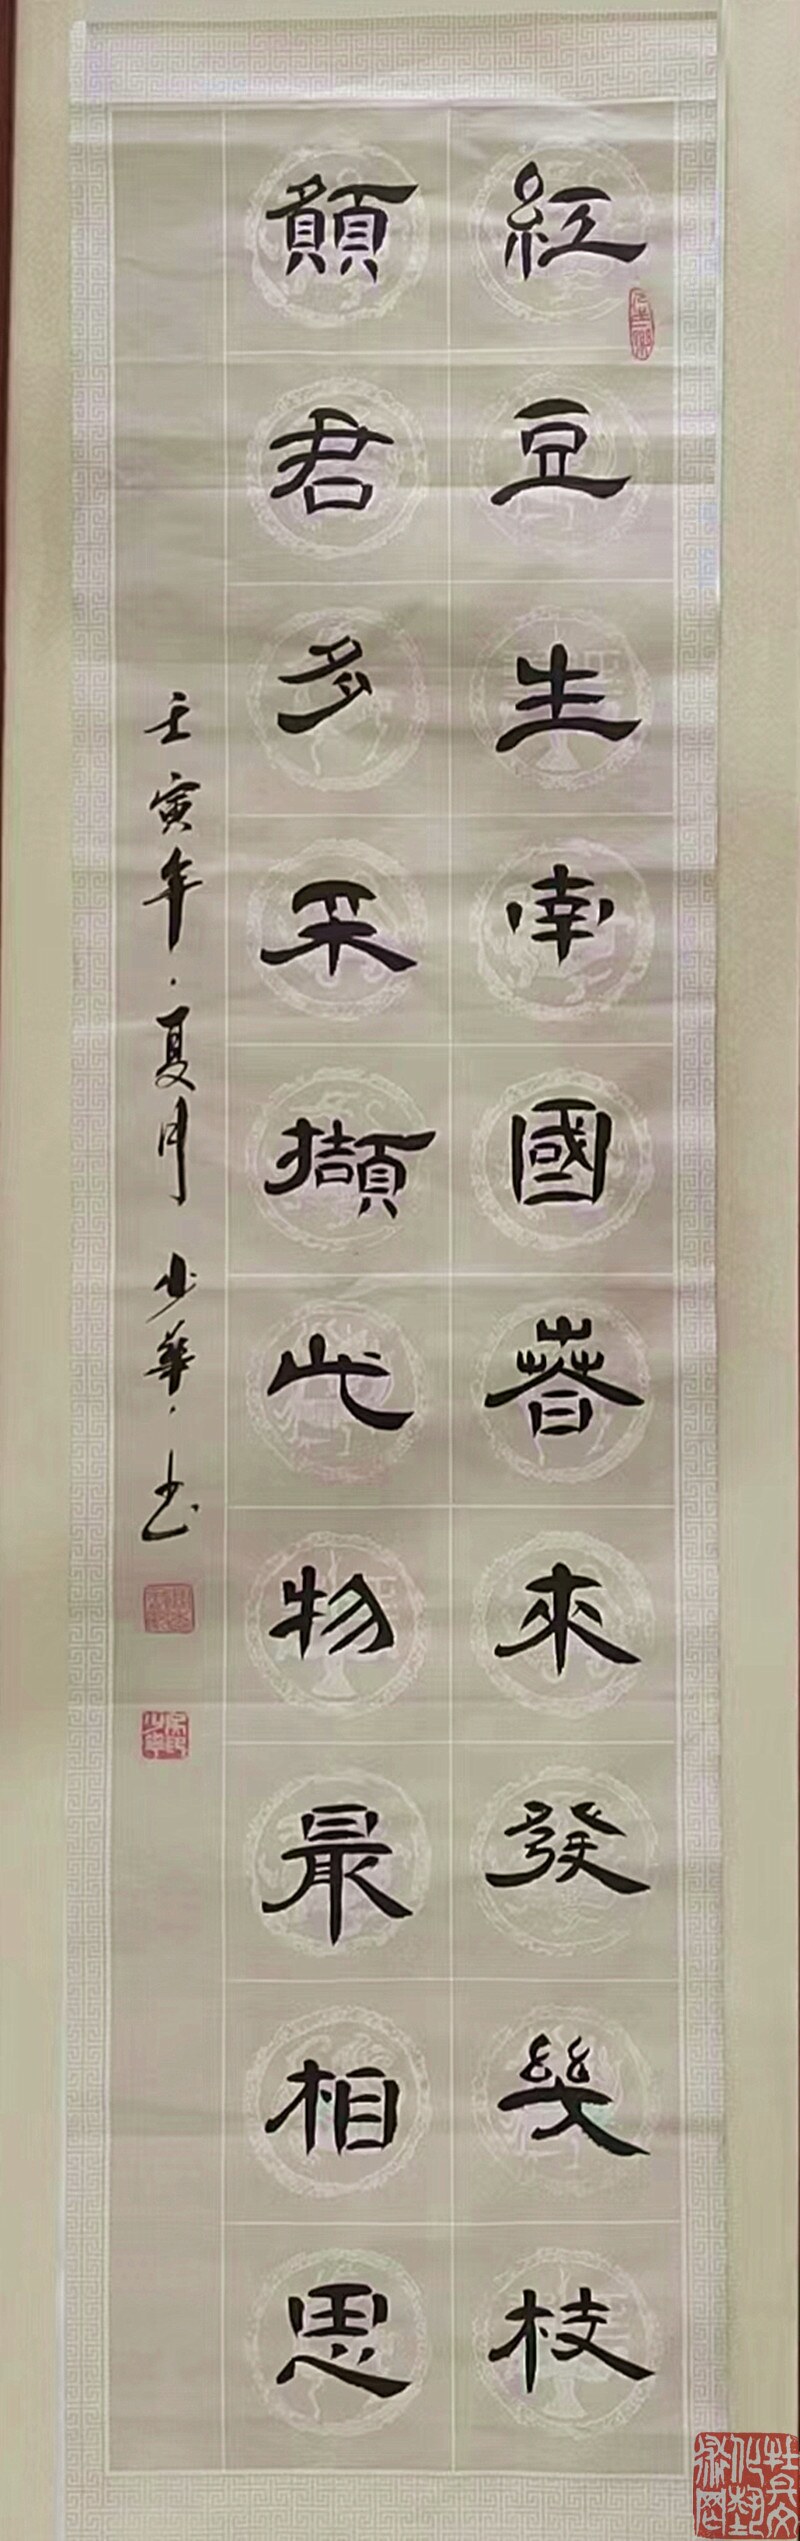 紅豆生南國春來發幾枝
願君多采擷此物最相思
壬寅年夏月少華書